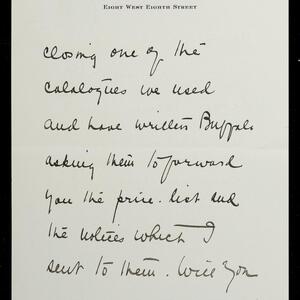 EIGHT WEST EIGHTH STREET
closing one of the
catalogues we used
and have written Buffalo
asking them to forward
you the price-list and
the notices which I
sent to them. Will you